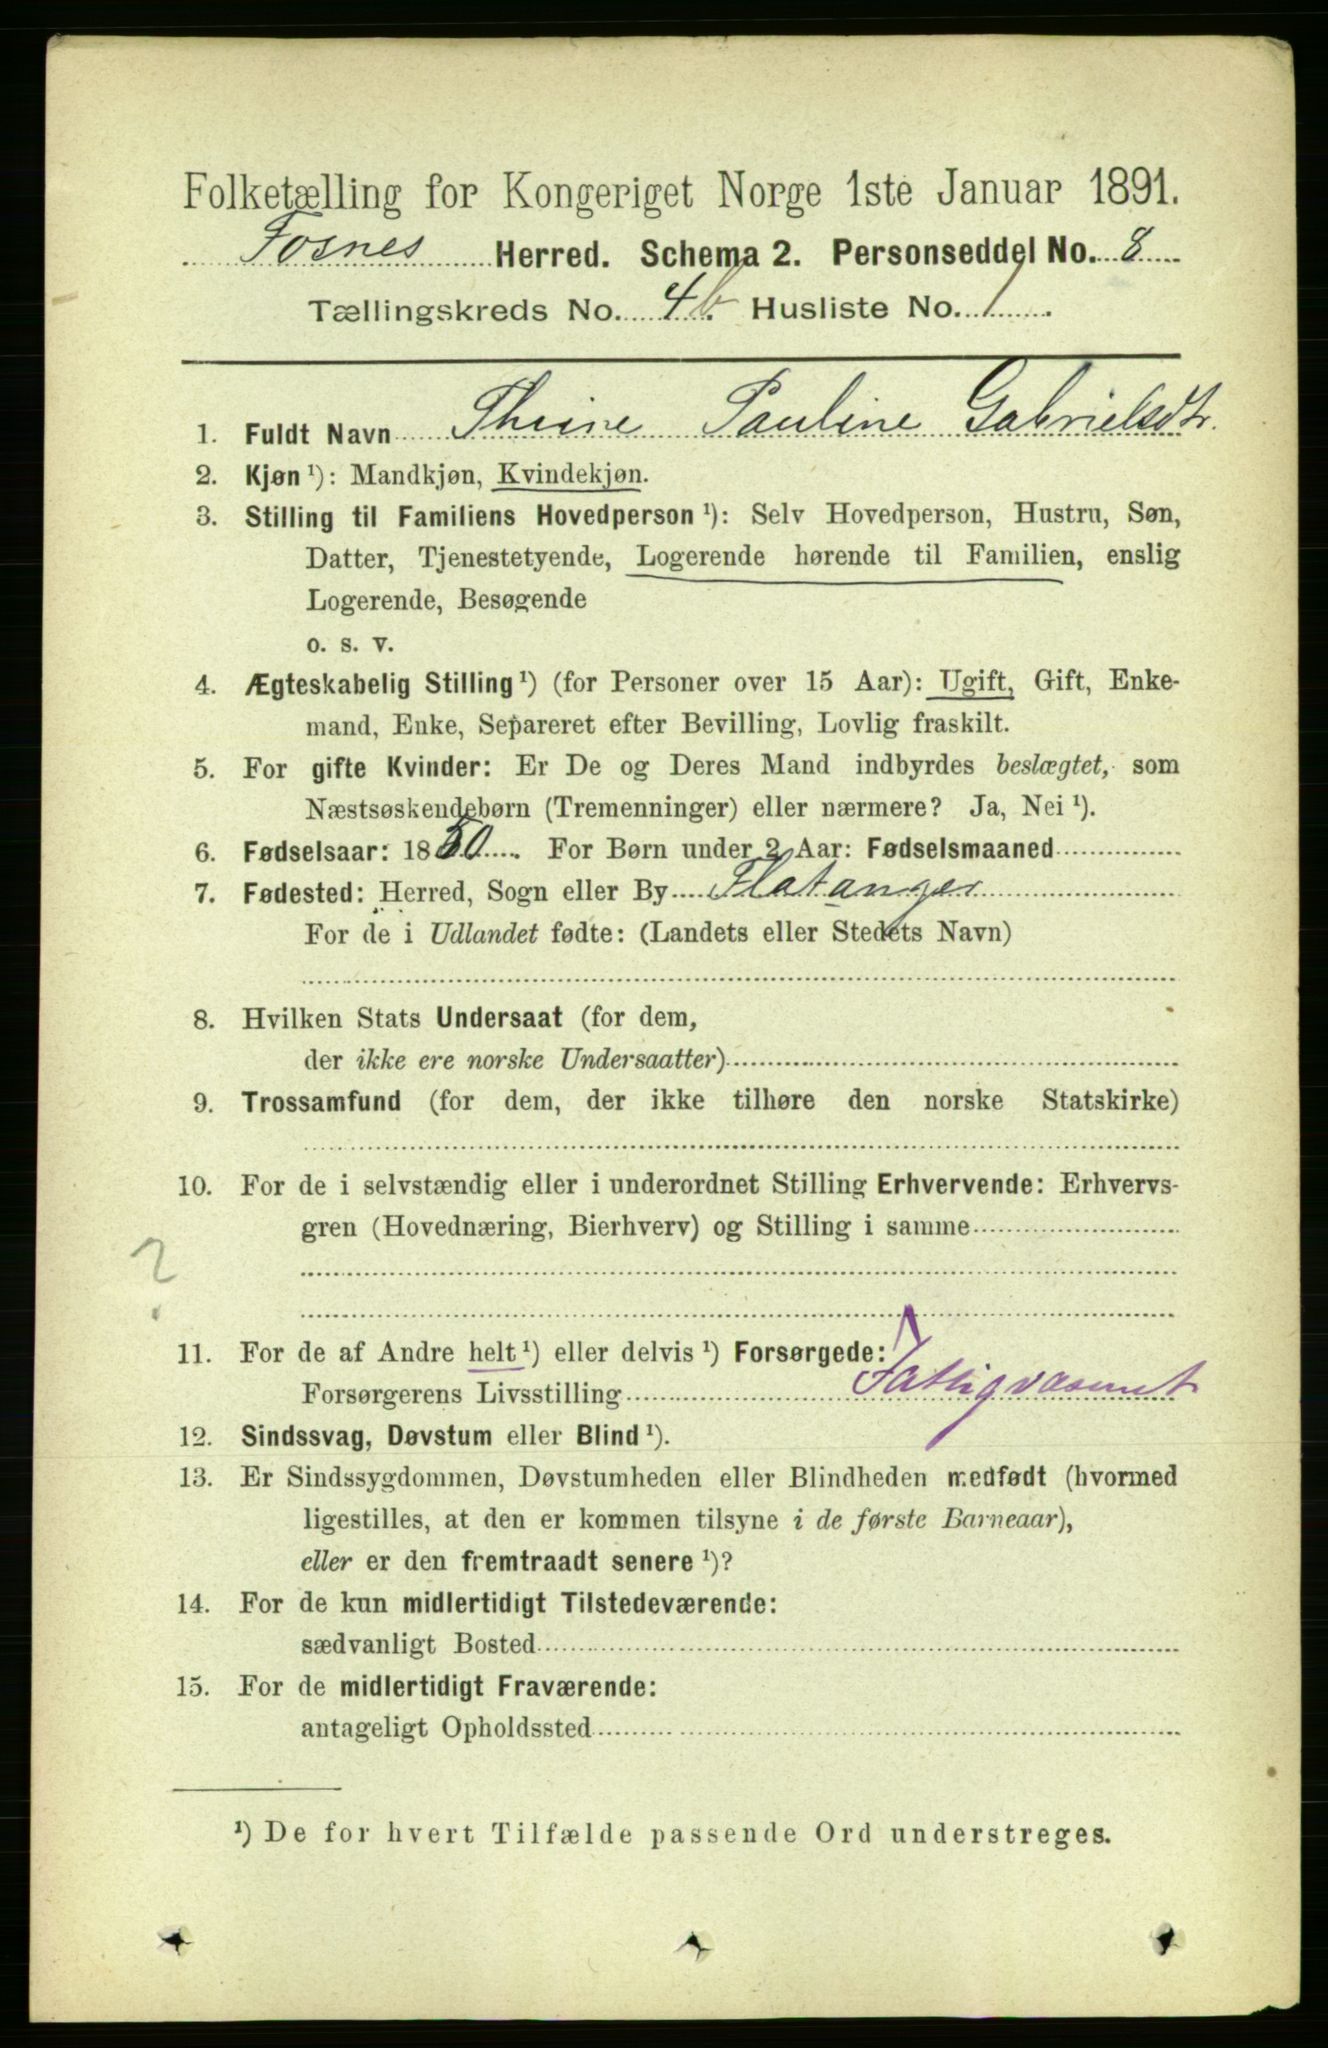 Folketælling for Kongeriget Norge 1ste Januar 1891.
Fosnes Herred. Schema 2. Personseddel No. 8
Tællingskreds No. 4b. Husliste No. 1.
1. Fuldt Navn Thrine Pauline Gabrielsdtr.
2. Kjøn ¹): Mandkjøn, Kvindekjøn.
3. Stilling til Familiens Hovedperson ¹): Selv Hovedperson, Hustru, Søn,
Datter, Tjenestetyende, Logerende hørende til Familien, enslig
Logerende, Besøgende
o. s. v.
4. Ægteskabelig Stilling ¹) (for Personer over 15 Aar): Ugift, Gift, Enke-
mand, Enke, Separeret efter Bevilling, Lovlig fraskilt.
5. For gifte Kvinder: Er De og Deres Mand indbyrdes beslægtet, som
Næstsøskendebørn (Tremenninger) eller nærmere? Ja, Nei ¹).
6. Fødselsaar: 1850. For Børn under 2 Aar: Fødselsmaaned
7. Fødested: Herred, Sogn eller By Flatanger
For de i Udlandet fødte: (Landets eller Stedets Navn)
8. Hvilken Stats Undersaat (for dem,
der ikke ere norske Undersaatter)
9. Trossamfund (for dem, der ikke tilhøre den norske Statskirke)
10. For de i selvstændig eller i underordnet Stilling Erhvervende: Erhvervs-
gren (Hovednæring, Bierhverv) og Stilling i samme
?
11. For de af Andre helt ¹) eller delvis ¹) Forsørgede:
Forsørgerens Livsstilling Fattigvæsenet
12. Sindssvag, Døvstum eller Blind ¹).
13. Er Sindssygdommen, Døvstumheden eller Blindheden medfødt (hvormed
ligestilles, at den er kommen tilsyne i de første Barneaar),
eller er den fremtraadt senere ¹)?
14. For de kun midlertidigt Tilstedeværende:
sædvanligt Bosted
15. For de midlertidigt Fraværende:
antageligt Opholdssted
¹) De for hvert Tilfælde passende Ord understreges.